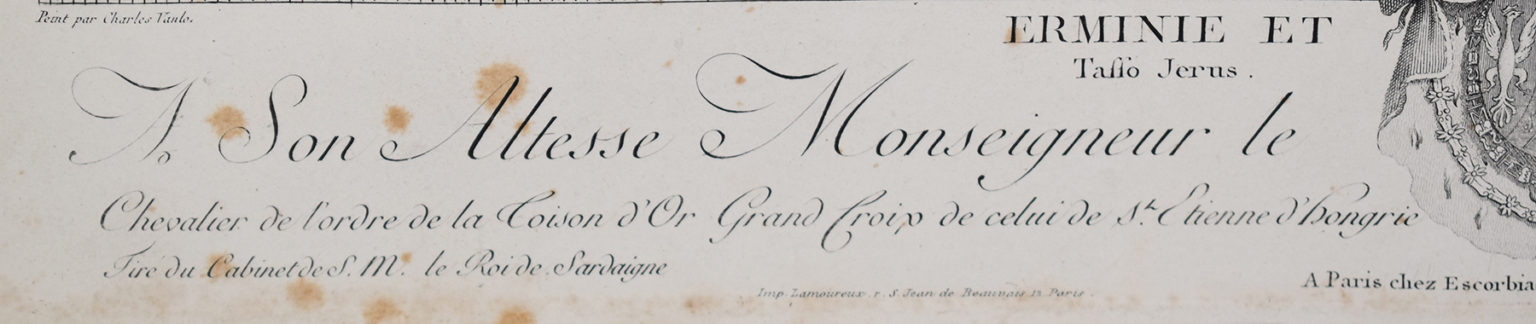 Peint par Charles Vanlo.
ERMINIE ET
Tasso Jerus.
A Son Altesse Monseigneur le
Chevalier de l'ordre de la Toison d'Or Grand Croix de celui de St. Etienne d'Hongrie
Tiré du Cabinet de S. M. le Roi de Sardaigne
Imp. Lamoureux. r. S. Jean de Beauvais 12 Paris.
A Paris chez Escorbia